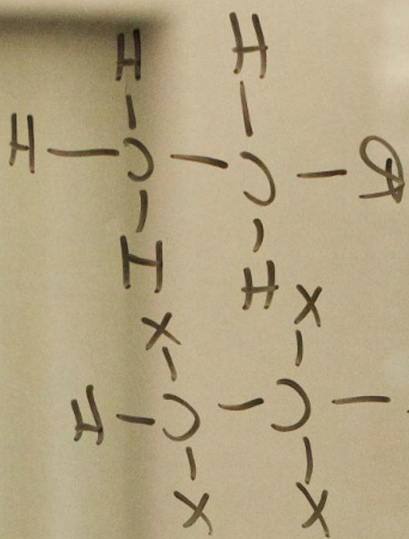 H H
H — C — C — R
H H
X X
H — C — C —
X X